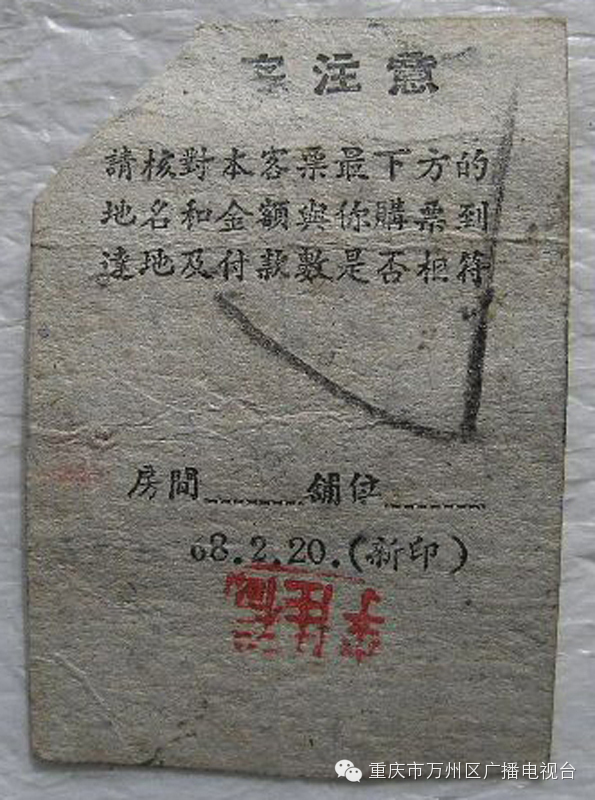 注意
請核對本客票最下方的
地名和金額與你購票到
達地及付款數是否相符
房間 舖位
68.2.20.(新印)
重庆市万州区广播电视台